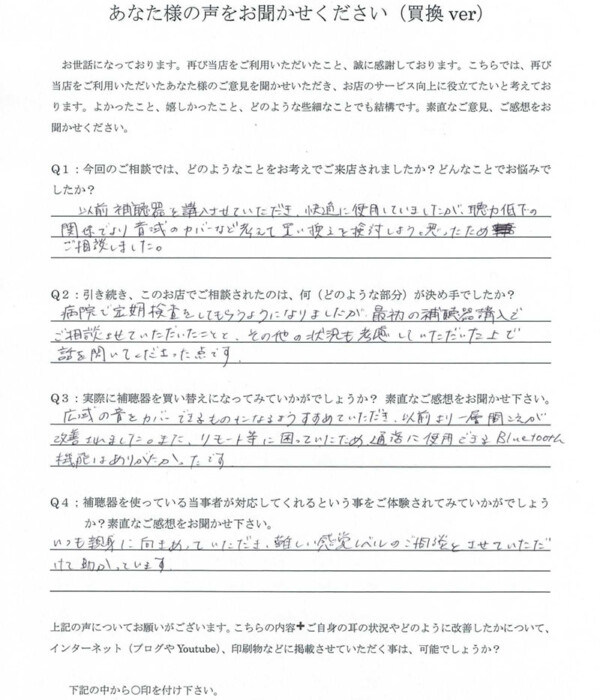 あなた様の声をお聞かせください（買換 ver）
お世話になっております。再び当店をご利用いただいたこと、誠に感謝しております。こちらでは、再び
当店をご利用いただいたあなた様のご意見を聞かせいただき、お店のサービス向上に役立てたいと考えてお
ります。よかったこと、嬉しかったこと、どのような些細なことでも結構です。素直なご意見、ご感想をお
聞かせください。
Q1：今回のご相談では、どのようなことをお考えでご来店されましたか？どんなことでお悩みで
したか？
以前 補聴器を購入させていただき、快適に使用していましたが、聴力低下の
関係でより音域のカバーなど考えて買い換えを検討しようと思ったため
ご相談しました。
Q2：引き続き、このお店でご相談されたのは、何（どのような部分）が決め手でしたか？
病院で定期検査をしてもらうようになりましたが、最初の補聴器購入で
ご相談させていただいたことと、その他の状況も考慮していただいた上で
話を聞いてくださった点です。
Q3：実際に補聴器を買い替えになってみていかがでしょうか？ 素直なご感想をお聞かせ下さい。
広域の音をカバーできるものになるようすすめていただき、以前より一層聞こえが
改善されました。また、リモート等に困っていたため、通話に使用できるBluetooth
機能はありがたかったです
Q4：補聴器を使っている当事者が対応してくれるという事をご体験されてみていかがでしょう
か？素直なご感想をお聞かせ下さい。
いつも親身に向きあっていただき、難しい感覚レベルのご相談をさせていただ
けて助かっています
上記の声についてお願がございます。こちらの内容＋ご自身の耳の状況やどのように改善したかについて、
インターネット（ブログや Youtube）、印刷物などに掲載させていただく事は、可能でしょうか？
下記の中から〇印を付け下さい。